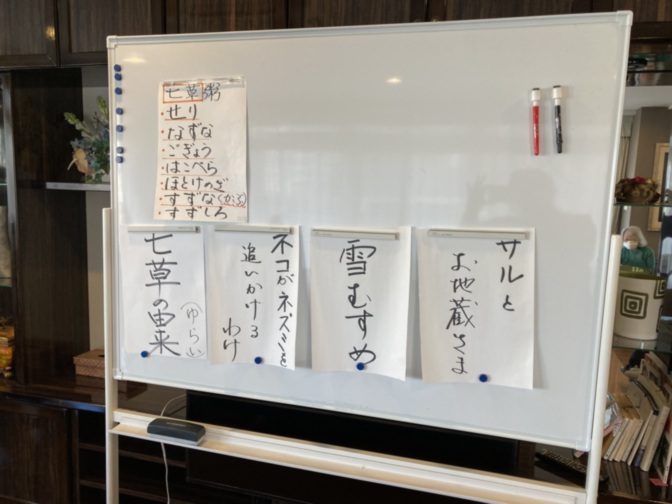 七草粥
・せり
・なずな
・ごぎょう
・はこべら
・ほとけのざ
・すずな(かぶ)
・すずしろ
サルと
お地蔵さま
雪むすめ
ネコがネズミを
追いかける
わけ
七草の由来
(ゆらい)